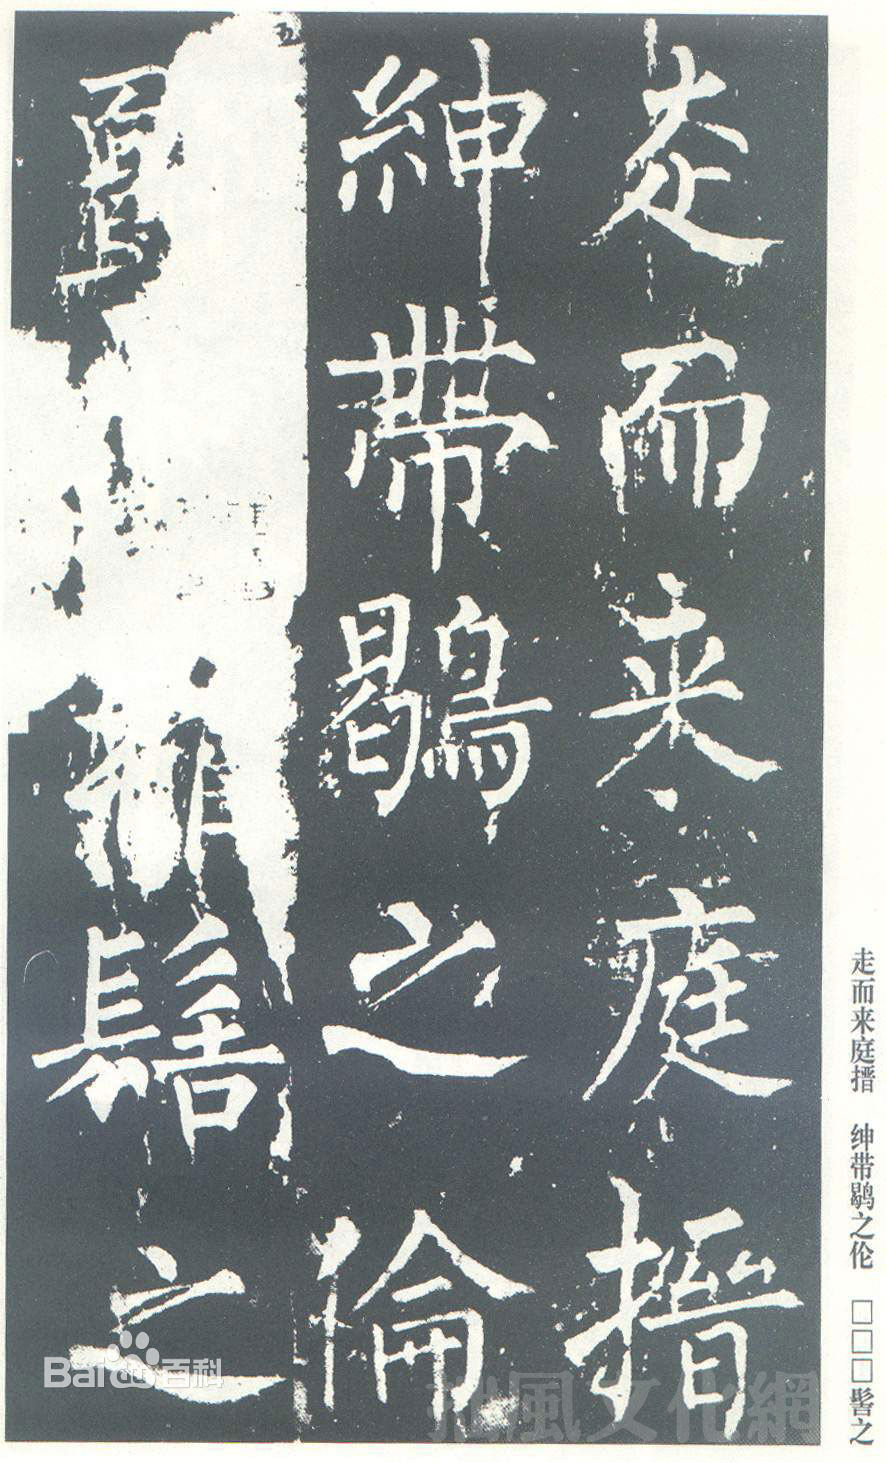 走而来庭搢
紳帶鶡之倫
髻之
走而来庭搢 绅带鹖之伦 □□□髻之
Bai百科
拙風文化網